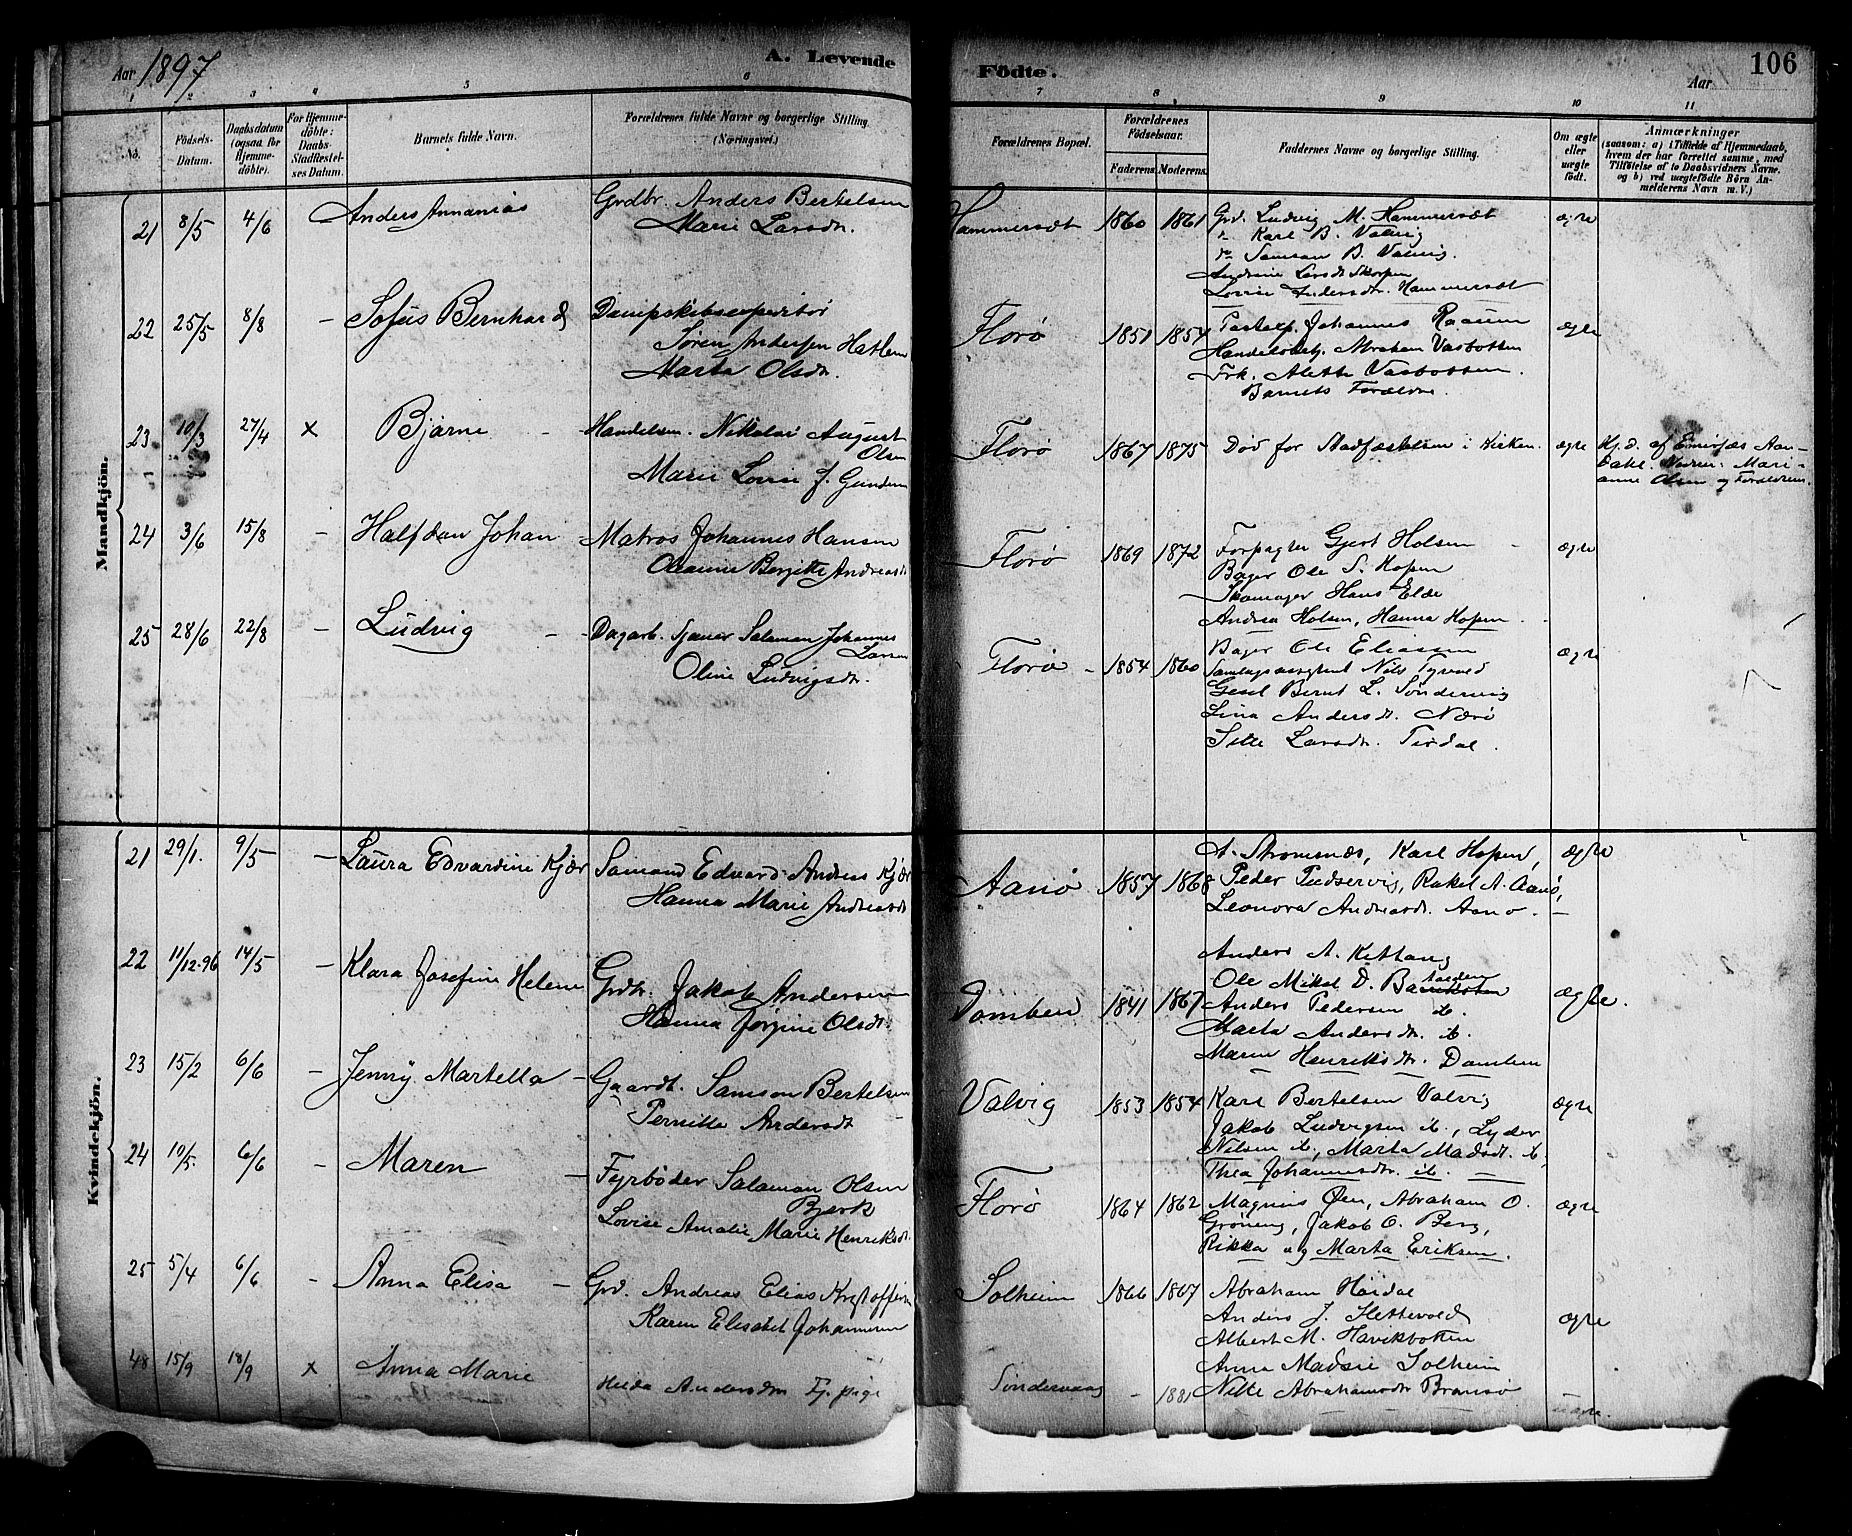 Aar 1897 A. Levende Födte. Aar 106
1 2 3 4 5 6 7 8 9 10 11
No.
Födsels-Datum.
Daabsdatum (ogsaa for Hjemmedöbte).
For Hjemmedöbte: Daabs-Stadfæstelses Datum.
Barnets fulde Navn.
Forældrenes fulde Navne og borgerlige Stilling. (Næringsvei.)
Forældrenes Bopæl.
Forældrenes Födselsaar.
Faderens. Moderens.
Faddernes Navne og borgerlige Stilling.
Om ægte eller uægte födt.
Anmærkninger
(saasom: a) i Tilfælde af Hjemmedaab, hvem der har forrettet samme, med Tilföielse af to Daabsvidners Navne, og b) ved uægtefödte Börn Anmelderens Navn m. V.)
Mandkjön.
21 8/5 4/6 Anders Annanias Grdbr. Anders Bertelsen
Marie Larsdr.
Hammersæt 1860 1861 Grd. Ludvig M. Hammersæt ægte
Karl B. Valvig
do Samson B. Valvig.
Andrine Larsdt Skorpen
Lovise Andersdr. Hammersæt
22 25/5 8/8 - Sofus Bernhard Dampskibsexpeditör
Søren Andersen Hatlem
Marta Olsdr.
Florø 1851 1854 Postexp. Johannes Raaum ægte
Handelsbetj. Abraham Vasbotten
Frk. Alette Vasbotten.
Barnets Forældre
23 10/3 27/4 x Bjarne - Handelsm. Nikolai August
Olsen
Marie Lovise f. Gundersen
Florø 1867 1875 Død før Stadfæstelsen i Kirken. ægte Hj.d. af
Mari-
anne Olsen og Forældrene.
24 3/6 15/8 - Halfdan Johan Matros Johannes Hansen
Oleanne Bergitte Andreasdt
Florø 1869 1872 Forpagter Gjert Holsen - ægte
Bager Ole S. Hopen
Skomager Hans Elde
Andrea Holsen, Hanna Hopen
25 28/6 22/8 - Ludvig - Dagarb. Sjauer Salamon Johannes
Larsen
Oline Ludvigsdr.
Florø - 1854 1860 Bager Ole Eliassen ægte
Samlagsassistent Nils
Gesel Bernt L. Søndervig
Lina Andersdt. Nærø
Larsdr.
Kvindekjön.
21 29/1. 9/5 - Laura Edvardine Kjær Samund Edvard Andreas Kjær
Hanna Marie Andreasdt
Aanø 1857 1868 A. Stromsnæs, Karl Hopen, ægte
Peder Pudservig, Rakel A. Aanø,
Leonora Andreasdt. Aanø. -
22 11/12.96 14/5 - Klara Josefine Helene Grdbr. Jakob Andersen
Hanna Jørgine Olsdt.
Domben 1841 1867 Anders A. Kittang ægte.
Ole Mikal D.
Anders Pedersen ib.
Marta Andersdt. ib.
Maren Henriksdt. Domben
23 15/2 6/6 - Jenny Martella - Gaardt. Samson Bertelsen
Pernille Andersdt -
Valvig 1853 1854 Karl Bertelsen Valvig ægte
Jakob Ludvigsen ib., Lyder
Nilsen ib, Marta Madsdt. ib,
Thea Johannesdt. ib. -
24 10/5. 6/6 - Maren - Fyrbøder Salamon Olsen
Bjørk
Lovise Amalie Marie Henriksdt.
Florø 1864 1862 Magnus Øen, Abraham O. ægte
Grøning, Jakob O. Berg,
Rikka og Marta Eriksen.
25 5/4 6/6 - Anna Elisa - Grd. Andreas Elias Kristoffersen
Karen Elisabet Johannesen
Solheim 1866 1867 Abraham Høidal
Anders J. Hettevold ægte
Albert M. Havikbotten
Anna Madsie Solheim
Nille Abrahamsdt Bransø
48 15/9 18/9 x Anna Marie Hilda Andersdtr Tj. pige
Søndervaag - 1881 - uægte.